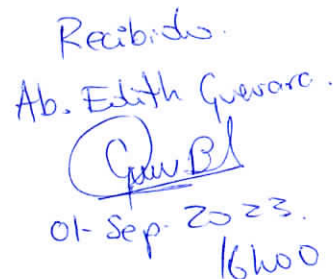 Recibido.
Ab. Edith Guevara.
01-Sep. 2023.
16h00